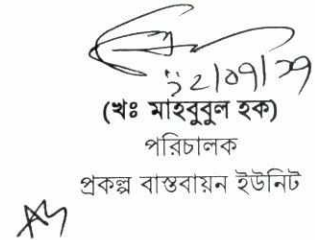 (খঃ মাহবুবুল হক)
পরিচালক
প্রকল্প বাস্তবায়ন ইউনিট